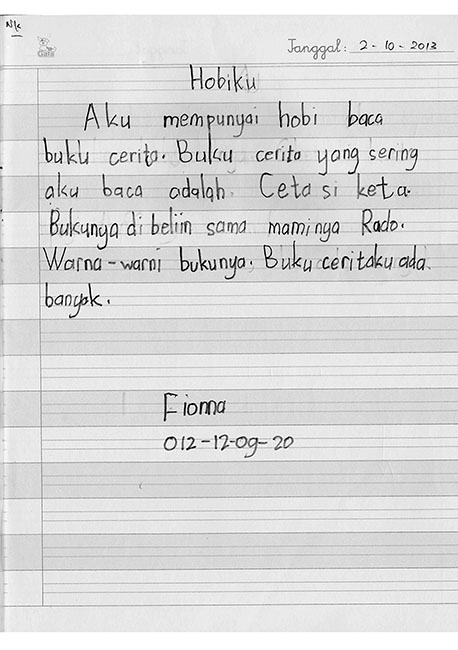 N/c
Gala
Tanggal: 2-10-2013
Hobiku
Aku mempunyai hobi baca
buku cerita. Buku cerita yang sering
aku baca adalah Ceta si keta.
Bukunya di beliin sama maminya Rado.
Warna-warni bukunya. Buku ceritaku ada
banyak.
Fionna
012-12-09-20